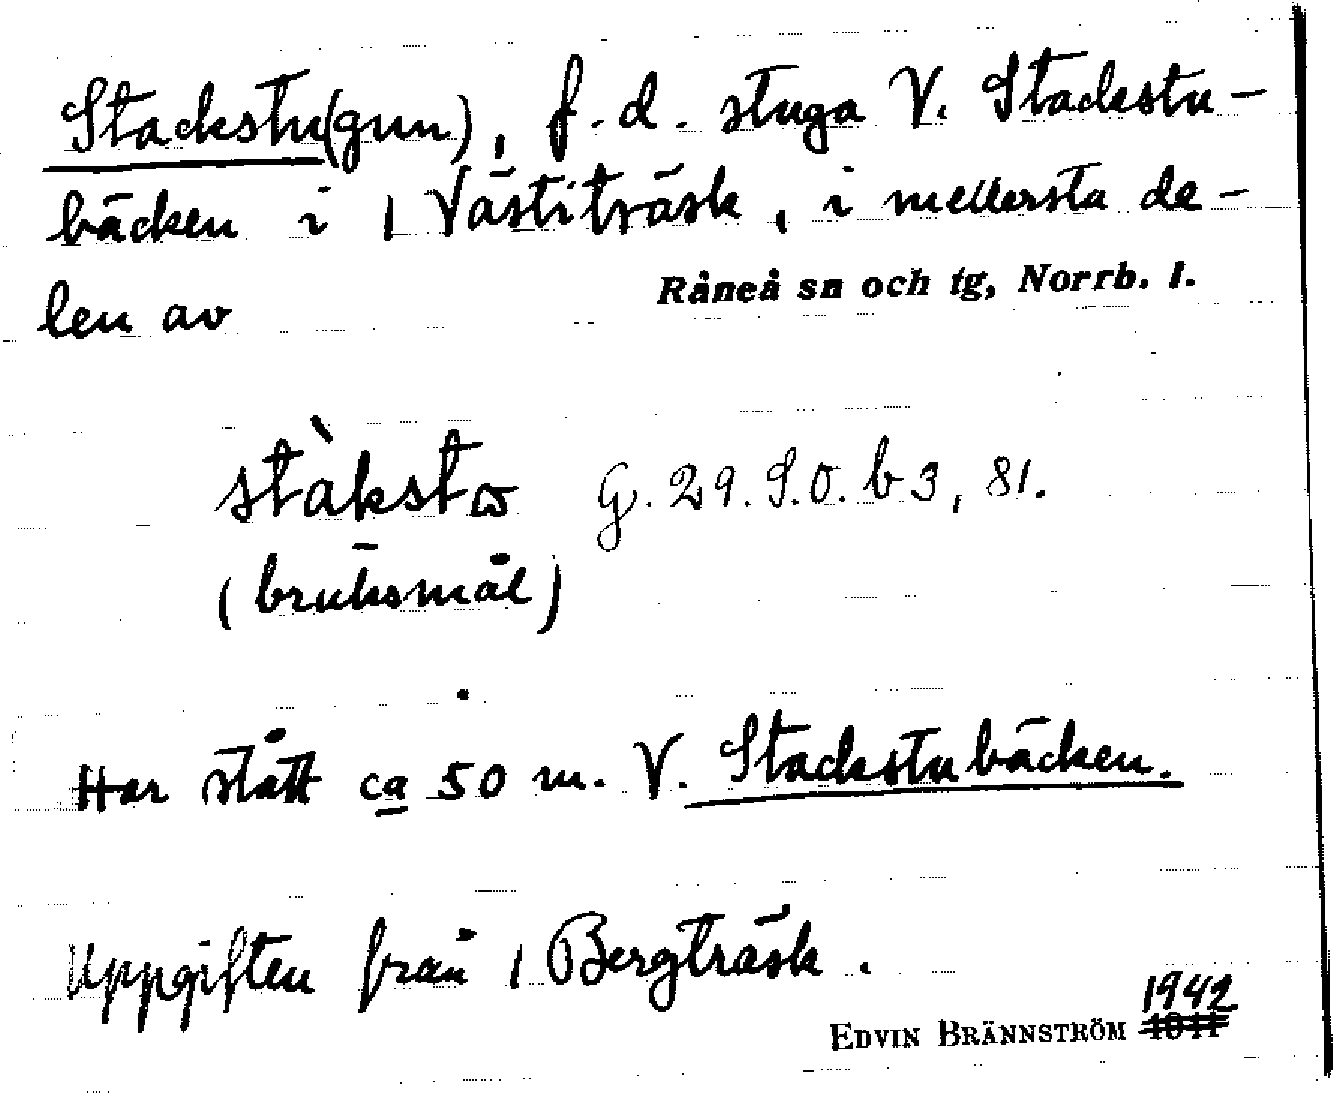 Stackstu(gun), f.d. stuga V. Stackstu-
bäcken i 1 Västiträsk, i mellersta de-
len av Råneå sn och tg, Norrb. l.
stàkstɷ G. 29. S.O. b 3, 81.
(bruksmål)
Har stått ca 50 m. V. Stackstubäcken.
Uppgiften från 1 Bergträsk.
1942
EDVIN BRÄNNSTRÖM 1941